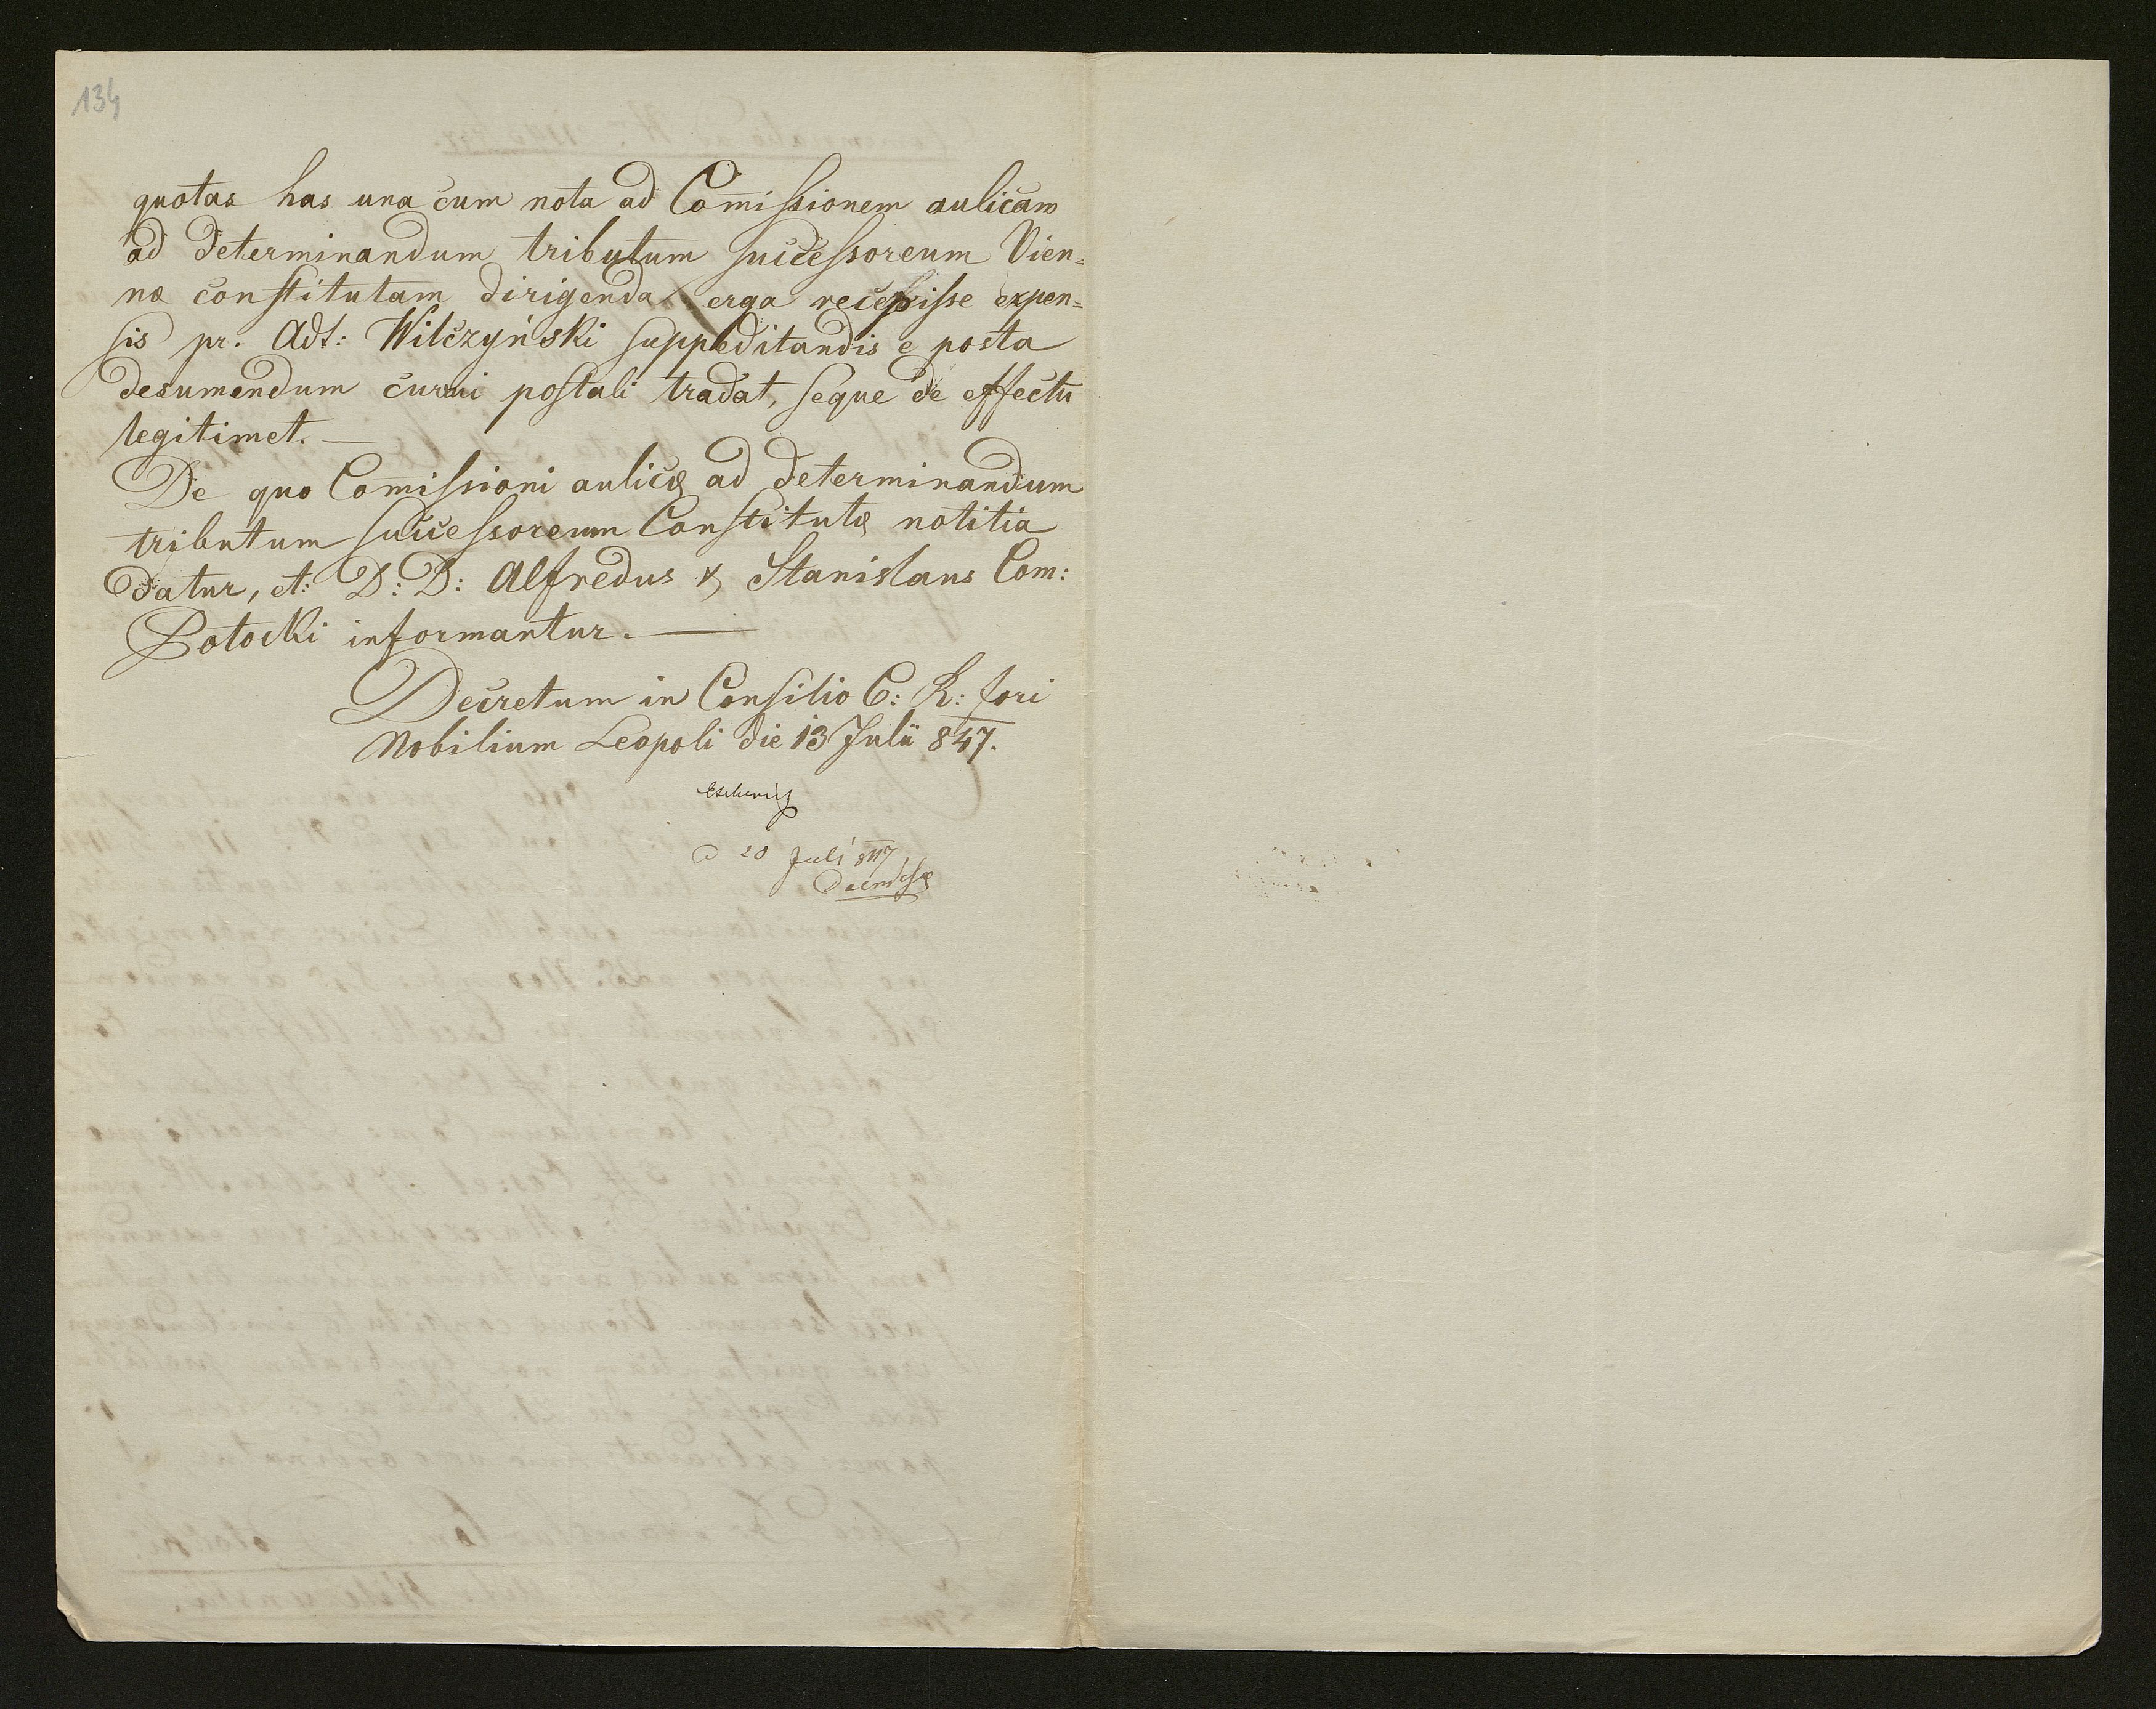 134
quotas has una cum nota ad Com̅issionem aulicam
ad determinandum tributum successoreum Vien=
næ constitutam dirigenda erga recepisse expen=
sis pr. Adt: Wilczyński suppeditandis e posta
desumendum currui postali tradat, seque de effectu
legitimet. —
De quo Com̅issioni aulicæ ad determinandum
tributum successoreum Constitutæ notitia
datur, et: D: D: Alfredus & Stanislaus Com:
Potocki informantur. —
Decretum in Consilio C: R: fori
Nobilium Leopoli die 13 Julii 847.
20 Juli 847